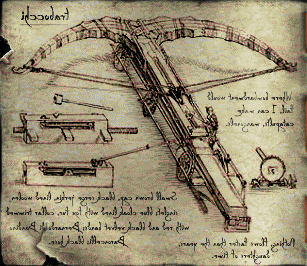 trabocchi
Where bombardment would
fail, I can make
catapults, mangonels,
Small brown cap, black serge jerkin, lined woolen
jacket, the cloak lined with fox fur, collar trimmed
red and black velvet hood; Bernardo di
Baroncelli; black hose.
Nothing flows faster than the years,
daughters of time.